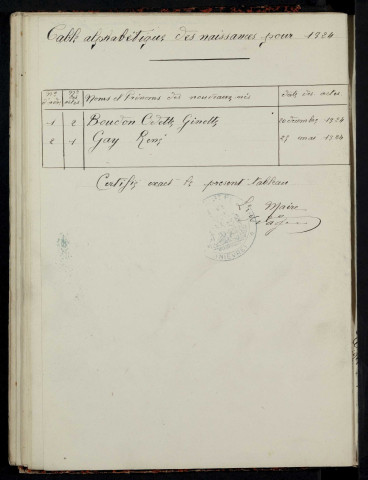 Table alphabétique des naissances pour 1924
Nos d'ordre Nos des actes Noms et Prénoms des nouveaux nés date des actes
1 2 Boudon Odette Ginette novembre 1924
2 1 Gay René 25 mai 1924
Certifié exact le présent tableau
Le Maire